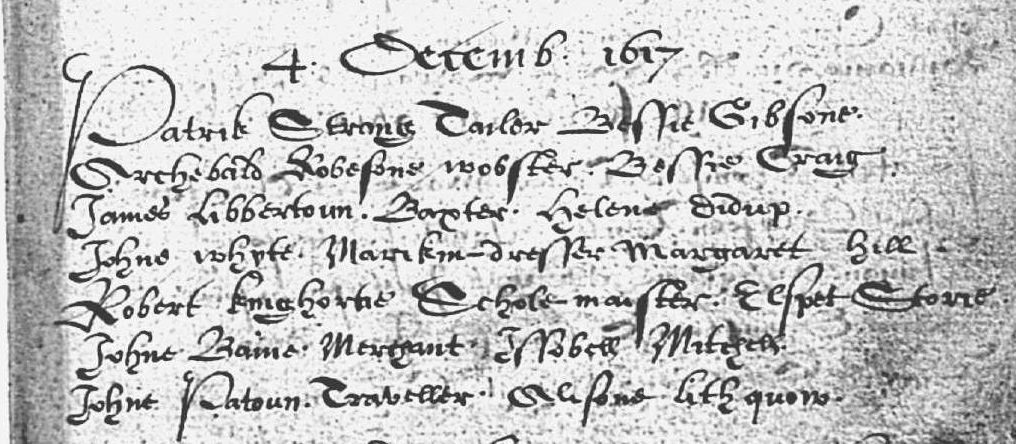 4. Decemb. 1617
Patrik Strang Tailor Bessie Gibsone.
Archebald Robesone wobster. Bessie Craig.
James Libbertoun. Baxter. Helene didup.
Johne whyte. Marikin-dresser Margaret hill.
Robert kinghorne Schole maister. Elspet Storie.
Johne Baine. Merchant. Issobell Mitchell.
Johne Patoun. Traveller. Alisone lithquow.